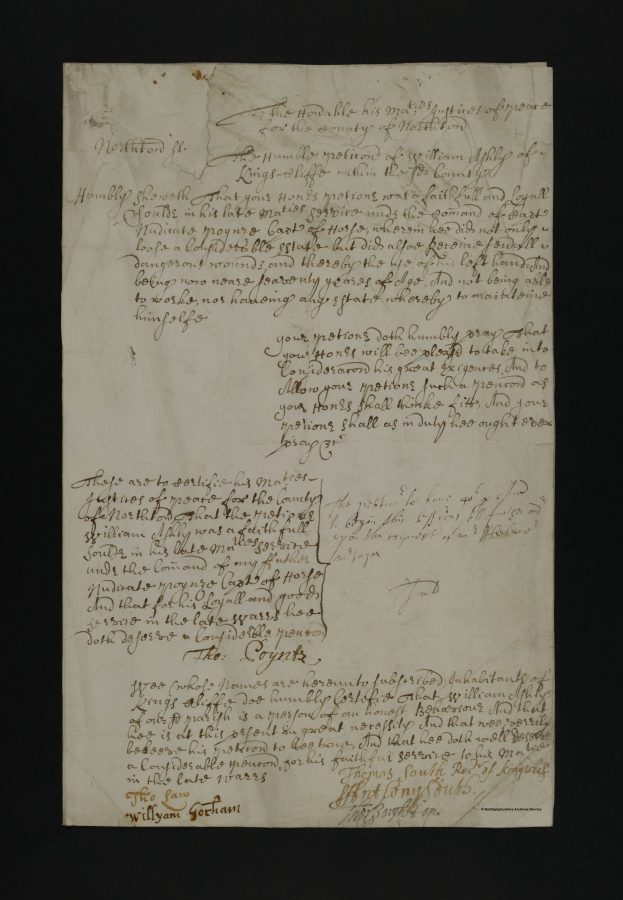 To the Honoable his Maties Justices of peace
for the County of Northton
Northton ss.
The Humble petiond of William Ashly of
Kings-Cliffe within the sd County
Humbly sheweth That your Honrs petionr was a faithfull and Loyall
Souldr in his late Maties Service undr the Comand of Capte
Nudicate Poynze Capt of Horse, wherein hee did not only
loose a Considerable Estate but did alsoe Receive seidall
dangerous wounds, and thereby the use of his left hand, And
being now neare seaventy yeares of Age, And not being able
to worke, nor haveing any Estate whereby to maintteine
himselfe
your petionr doth humbly pray That
your Honrs will bee pleasd to take into
Consideracon his great exigences, And to
Allow your petionr such a pencond as
your Honrs shall thinke fitt, And your
petionr shall as in duty hee ought ever
pray &c
These are to Certifie his Maties
Justices of peace for the County
of Northton, That the petionr
William Ashly was a faithfull
Souldr in his late Maties service
undr the Comand of my ffather
Nudicate Poynze Capt of Horse
And that for his Loyall and good
service in the late Warrs hee
doth deserve a Considerable pencon
Tho: Poyntz
The petitionr to have
to begin this sessions till further
upon the
Wee whose Names are hereunto subscrived Inhabitants of
Kings Cliffe doe humbly Certifie That William Ashly
of our sd parish is a person of an honest Behaviour And that
hee is at this psent in great necessity And that wee verily
beleeve his peticon to bee true, And that hee doth well deserve
a Considerable pencon, for his faithfull service to his Matie
in the late Warrs
Thomas South Rectr of Kingscliff
Anthony South
Tho Law
Willyam Gotham
© Northamptonshire Archives Service